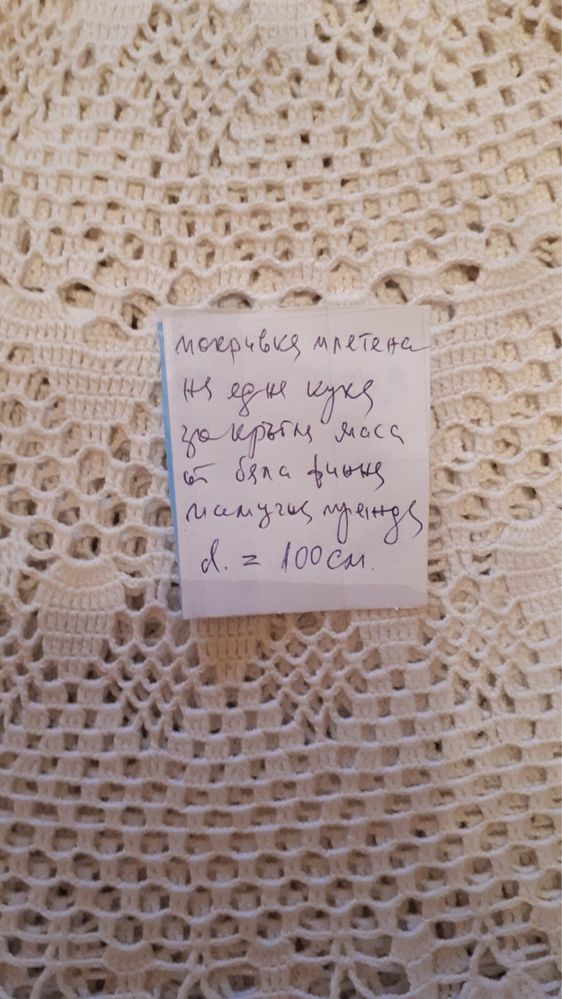 покривка плетена
на една кука
за кръгла маса
от бяла фина
памучна прежда
d. = 100 см.